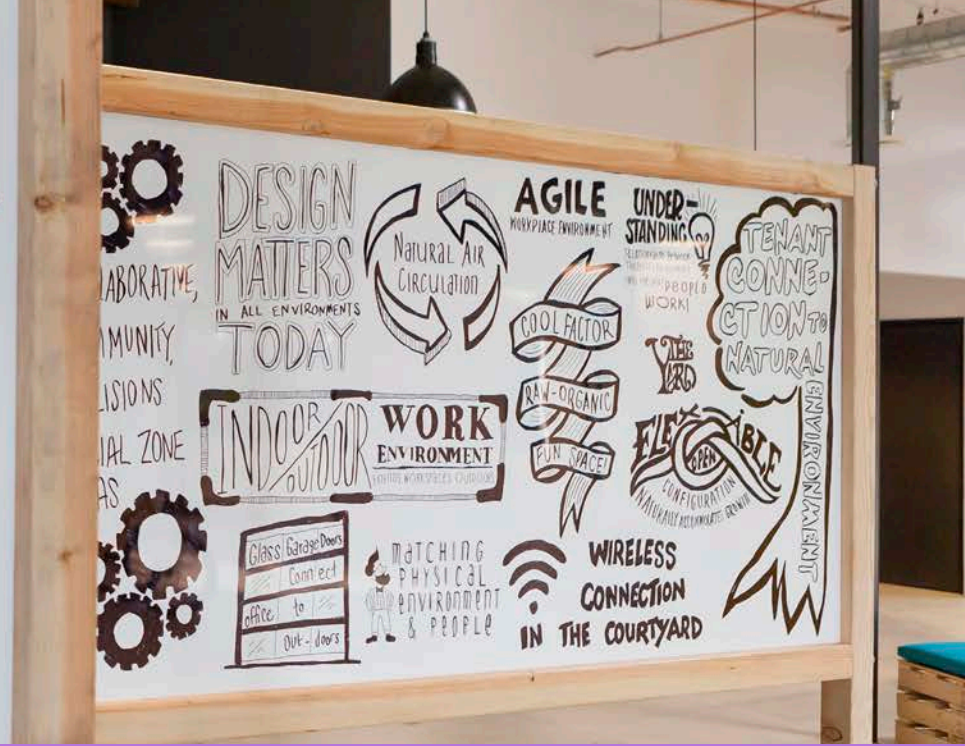 ABORATIVE,
MUNITY,
LISIONS
IAL ZONE
AS
DESIGN
MATTERS
IN ALL ENVIRONMENTS
TODAY
Natural Air
Circulation
AGILE
WORKPLACE ENVIRONMENT
COOL FACTOR
RAW-ORGANIC
FUN SPACE!
UNDER-
STANDING
PEOPLE
WORK!
THE
YARD
TENANT
CONNE-
CTION TO
NATURAL
ENVIRONMENT
INDOOR/OUTDOOR
WORK
ENVIRONMENT
FLEXABLE
OPEN
CONFIGURATION
NATURALLY ACCOMMODATES GROWTH
Glass Garage Doors
Connect
office to
out-doors
MATCHING
PHYSICAL
ENVIRONMENT
& PEOPLE
WIRELESS
CONNECTION
IN THE COURTYARD